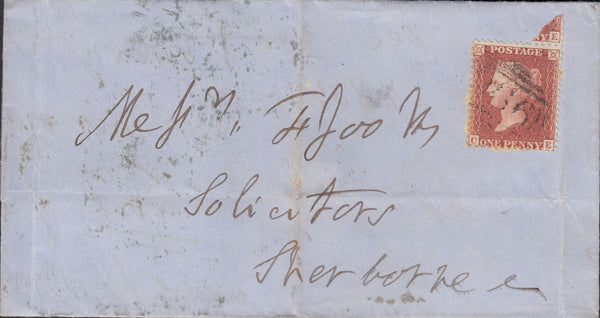 NY E
POSTAGE
C ONE PENNY E
Messrs. Ffooks
Solicitors
Sherborne